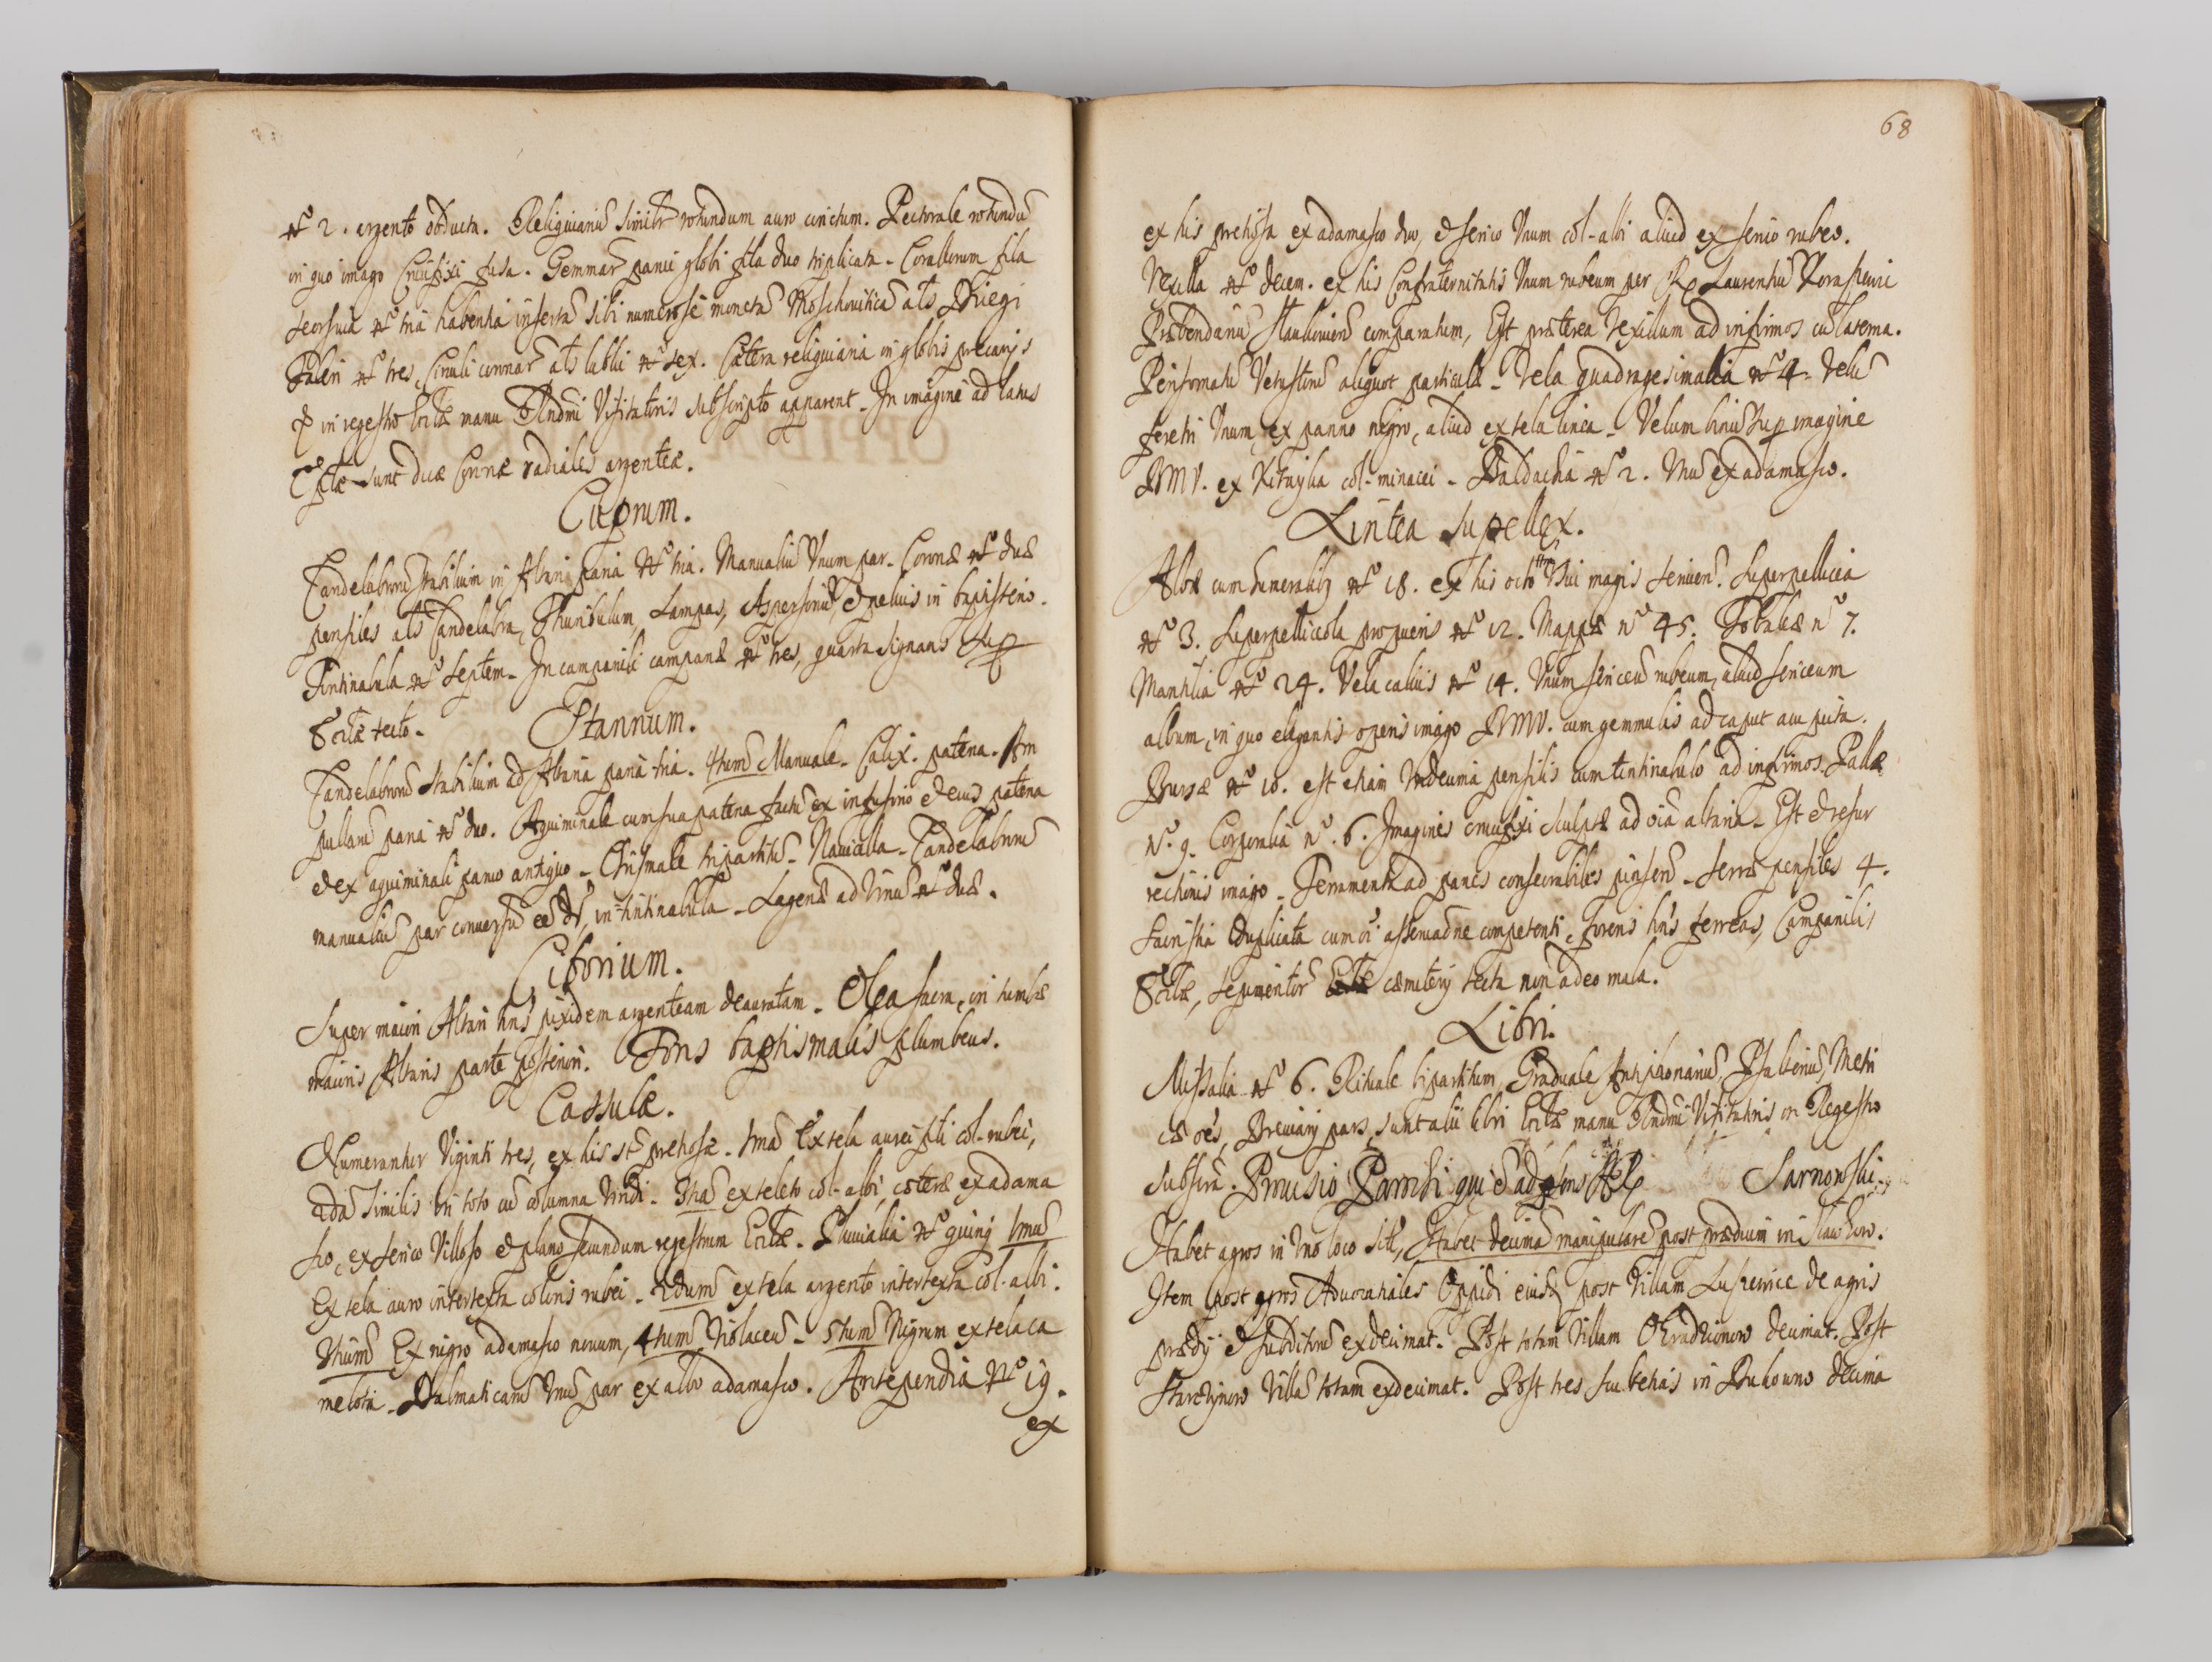 No 2. argento obducta. Reliquiariũ similr rotundum auro cinctum. Pectorale rotundũ
in quo imago Crucifixi fusa. Gemmarũ parvi globi fila duo triplicata. Corallorum fila
seorsiva No tria habentia inserta sibi numerose moneta Moschovitica als
No tres, als No sex. Cætera reliquiaria in globis precarijs
et in regestro Ecclæ manu Rndmi Visitatoris subscripto apparent. In imagine ad latus
Eplæ sunt duæ Coronæ radiales argenteæ.
Cuprum.
Candelabrorũ stabilium in Altari paria No tria. Manualiũ Vnum par. Coronæ No duæ
pensiles als Candelabra, Thuribulum, Lampas, Aspersoriũ, et pelvis in baptisterio.
Tintinabula No septem. In campanili campanæ No tres, quarta signans sup
Ecclæ tecto.
Stannum.
Candelabrorũ stabilium ad Altaria paria tria. 4tum Manuale. Calix. patena. Am
pullarũ paria No duo. Aquiminale cum sua patena factũ ex infusorio et eius patena
et ex aquiminali parvo antiquo. Chrismale tripartitũ. Navicella. Candelabrorũ
manualiũ par conversũ eẽ dr, in tintinabula. Lagenæ ad vinũ No duæ.
Ciborium.
Super maiori Altari hns pixidem argenteam deauratam. Olea sacra, in tumba
maioris Altaris parte posteriori. Fons baptismalis plumbeus.
Casulæ.
Numerantur Viginti tres, ex his st pretiosæ. Ima Ex tela aurei fili col. rubei,
2da similis in toto cũ columna viridi. 3tia ex teleto col. albi, cæteræ ex adama
sco, ex serico Villoso et plano secundum regestrum Ecclæ. Pluvialia No quinq Imũ
Ex tela auro intertexta coloris rubei. 2dum ex tela argento intertexta col. albi.
3tium Ex nigro adamasco novum, 4tum Violaceũ. 5tum Nigrum ex tela ca
melota. Dalmaticarũ Vnũ par ex albo adamasco. Antependia No 19.
ex
68
ex his pretiosa ex adamasco duo, et serico Vnum col. albi aliud ex serico rubeo.
Vexilla No decem. ex his Confraternitatis Vnum rubeum per R. Laurentiũ
Præbendariũ comparatum, Est præterea Vexillum ad infirmos cũ laterna.
Vetustiorũ aliquot particulæ. Vela quadragesimalia No 4. Velũ
feretri Vnum ex panno nigro, aliud ex tela linea. Velum sup imagine
BMV. ex Kitayka col. minacei. Baldachia No 2. Vnũ ex adamasco.
Lintea supellex.
Albæ cum humeralib No 18. ex his octo usui magis serviunt. Superpellicea
No 3. Superpelliceola pro pueris No 12. Mappæ no 45. Tobaleæ no 7.
Mantilia No 24. Vela calicis No 14. Vnum sericeũ rubeum, aliud sericeum
album, in quo elegantis operis imago BMV. cum gemmulis ad caput acu picta.
Bursæ No 10. est etiam Vndecima pensilis cum tintinabulo ad infirmos. Pallæ
No 9. Corporalia No 6. Imagines crucifixi sculptæ ad oia altaria. Est et resur
rectionis imago. Ferramenta ad panes consecrabiles pinsendos. Seræ pensiles 4.
Sacristia duplicata cum competenti, fores hns ferreas, Campanilis
Ecclæ, cæmiterij tecta non adeo mala.
Libri.
Missalia No 6. Rituale bipartitum, Graduale, Antiphonariũ, Psalteriũ, Metri
cæ oes, Breviarij pars, sunt alii libri Ecclæ manu Rndmi Visitatoris in Regestro
subscri. Provisio Parochi qui et adpñs Sarnowski.
Habet agros in uno loco siti, Habet decimã manipularẽ post prædium in
Item post agros Advocatiales Oppidi eiusdẽ post Villam de agris
prædij et subditorũ exdecimat. Post totam Villam decimat. Post
Villã totam exdecimat. Post tres in decima